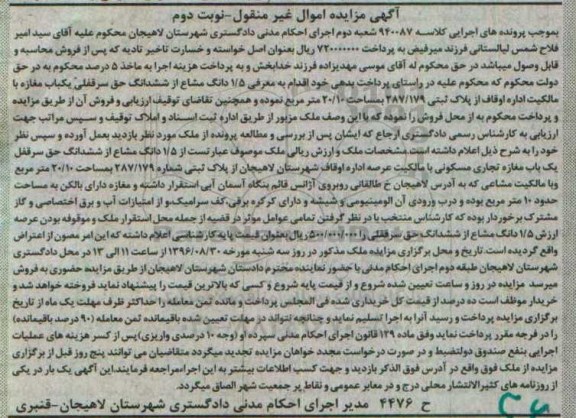 آگهی مزایده اموال غیر منقول-نوبت دوم
بموجب پرونده های اجرایی کلاسه ۹۴۰۰۸۷ شعبه دوم اجرای احکام مدنی دادگستری شهرستان لاهیجان محکوم علیه آقای سید امیر
فلاح شمس لیالستانی فرزند میرفیض به پرداخت ۷۲۰۰۰۰۰۰۰ ریال بعنوان اصل خواسته و خسارت تاخیر تادیه که پس از فروش محاسبه و
قابل وصول میباشد در حق محکوم له آقای موسی مهدیزاده فرزند خدابخش و به پرداخت هزینه اجرا به ماخذ ۵ درصد محکوم به در حق
دولت محکوم که محکوم علیه در راستای پرداخت بدهی خود اقدام به معرفی ۱/۵ دانگ مشاع از ششدانگ حق سرقفلی یکباب مغازه با
مالکیت اداره اوقاف از پلاک ثبتی ۲۸۷/۱۷۹ بمساحت ۲۰/۱۰ متر مربع نموده و همچنین تقاضای توقیف ارزیابی و فروش آن از طریق مزایده
و پرداخت محکوم به از محل فروش را نموده که با این وصف ملک مزبور از طریق اداره ثبت اسناد و املاک توقیف و سپس مراتب جهت
ارزیابی به کارشناس رسمی دادگستری ارجاع که ایشان پس از بررسی و مطالعه پرونده از ملک مورد نظر بازدید بعمل آورده و سپس نظر
خود را به شرح ذیل اعلام داشته است مشخصات ملک و ارزش ریالی ملک موصوف عبارتست از ۱/۵ دانگ مشاع از ششدانگ حق سرقفل
یک باب مغازه تجاری مسکونی با مالکیت عرصه اداره اوقاف شهرستان لاهیجان از پلاک ثبتی شماره ۲۸۷/۱۷۹ بمساحت ۲۰/۱۰ متر مربع
وبا مالکیت مشاعی که به آدرس لاهیجان خ طالقانی روبروی آژانس قائم بنگاه آسمان آبی استقرار داشته و مغازه دارای بالکن به مساحت
حدود ۱۰ متر مربع بوده و درب ورودی آن الومینیومی و شیشه و دارای کرکره برقی،کف سرامیک،و از امتیازات آب و برق اختصاصی و گاز
مشترک برخوردار بوده که کارشناس منتخب با در نظر گرفتن تمامی عوامل موثر در قضیه از جمله محل استقرار ملک و موقوفه بودن عرصه
ارزش ۱/۵ دانگ مشاع از ششدانگ حق سرقفلی را ۵۰۰/۰۰۰/۰۰۰ ریال بعنوان قیمت پایه کارشناسی اعلام داشته که این امر مصون از اعتراض
واقع گردیده است. تاریخ و محل برگزاری مزایده ملک مذکور در روز سه شنبه مورخه ۱۳۹۶/۰۸/۳۰ از ساعت ۱۱ الی ۱۲ در محل دادگستری
شهرستان لاهیجان طبقه دوم اجرای احکام مدنی با حضور نماینده محترم دادستان شهرستان لاهیجان از طریق مزایده حضوری به فروش
میرسد مزایده در روز و ساعت تعیین شده شروع و از قیمت پایه شروع و کسی که بالاترین قیمت را پیشنهاد نماید فروخته خواهد شد و
خریدار موظف است ده درصد از قیمت کل خریداری شده فی المجلس پرداخت و مانده ثمن معامله را حداکثر ظرف مهلت یک ماه از تاریخ
برگزاری مزایده پرداخت و رسید آنرا به اجرا تسلیم نماید و چنانچه نتواند در مهلت تعیین شده باقیمانده ثمن معامله (۹۰ درصد باقیمانده)
را در فرجه مقرر پرداخت نماید وفق ماده ۱۲۹ قانون اجرای احکام مدنی سپرده او (وجه ۱۰ درصدی واریزی)پس از کسر هزینه های عملیات
اجرایی بنفع صندوق دولتضبط و در صورت درخواست مجدد خواهان مزایده تجدید میگردد متقاضیان می توانند پنج روز قبل از برگزاری
مزایده از ملک فوق واقع در آدرس فوق الذکر بازدید و جهت کسب اطلاعات بیشتر به این اجرا،مراجعه فرمایند.این آگهی یک بار در یکی
از روزنامه های کثیرالانتشار محلی درج و در معابر عمومی و نقاط پر جمعیت شهر الصاق میگردد.
ح ۴۴۷۶ مدیر اجرای احکام مدنی دادگستری شهرستان لاهیجان-قنبری